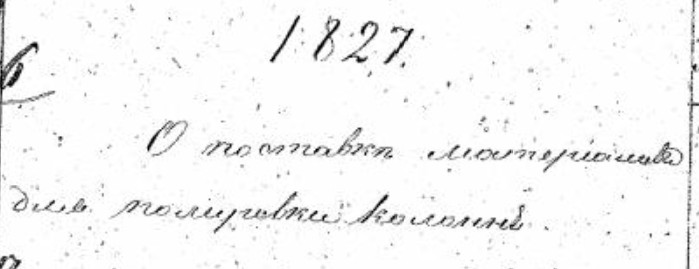 1827.
6
О поставкѣ матеріаловъ
для полировки колоннъ.